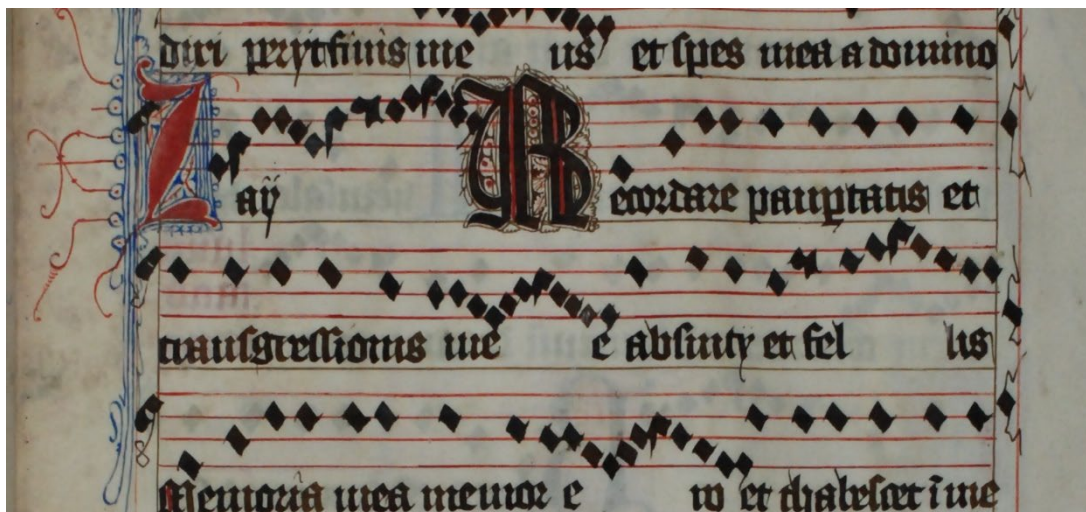 diri perijt finis me us et spes mea a domino
Zaÿ Recordare paup̲tatis et
transgressionis me e absintij et fel lis
Memoria mea memor e ro et thabescet ī me